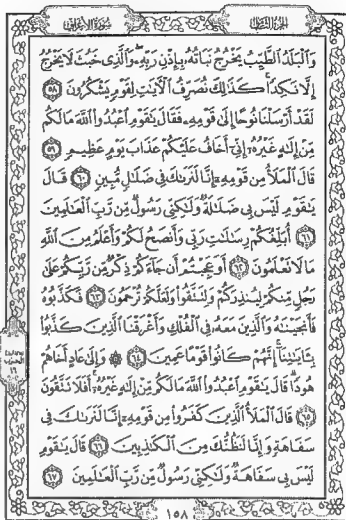 سورة الأعراف
الجزء الثامن
وَٱلْبَلَدُ ٱلطَّيِّبُ يَخْرُجُ نَبَاتُهُۥ بِإِذْنِ رَبِّهِۦ وَٱلَّذِى خَبُثَ لَا يَخْرُجُ
إِلَّا نَكِدًا كَذَٰلِكَ نُصَرِّفُ ٱلْءَايَٰتِ لِقَوْمٍ يَشْكُرُونَ ٥٨
لَقَدْ أَرْسَلْنَا نُوحًا إِلَىٰ قَوْمِهِۦ فَقَالَ يَٰقَوْمِ ٱعْبُدُوا۟ ٱللَّهَ مَا لَكُم
مِّنْ إِلَٰهٍ غَيْرُهُۥٓ إِنِّىٓ أَخَافُ عَلَيْكُمْ عَذَابَ يَوْمٍ عَظِيمٍ ٥٩
قَالَ ٱلْمَلَأُ مِن قَوْمِهِۦٓ إِنَّا لَنَرَىٰكَ فِى ضَلَٰلٍ مُّبِينٍ ٦٠ قَالَ
يَٰقَوْمِ لَيْسَ بِى ضَلَٰلَةٌ وَلَٰكِنِّى رَسُولٌ مِّن رَّبِّ ٱلْعَٰلَمِينَ
٦١ أُبَلِّغُكُمْ رِسَٰلَٰتِ رَبِّى وَأَنصَحُ لَكُمْ وَأَعْلَمُ مِنَ ٱللَّهِ
مَا لَا تَعْلَمُونَ ٦٢ أَوَعَجِبْتُمْ أَن جَآءَكُمْ ذِكْرٌ مِّن رَّبِّكُمْ عَلَىٰ
رَجُلٍ مِّنكُمْ لِيُنذِرَكُمْ وَلِتَتَّقُوا۟ وَلَعَلَّكُمْ تُرْحَمُونَ ٦٣ فَكَذَّبُوهُ
فَأَنجَيْنَٰهُ وَٱلَّذِينَ مَعَهُۥ فِى ٱلْفُلْكِ وَأَغْرَقْنَا ٱلَّذِينَ كَذَّبُوا۟
بِـَٔايَٰتِنَآ إِنَّهُمْ كَانُوا۟ قَوْمًا عَمِينَ ٦٤ ۞ وَإِلَىٰ عَادٍ أَخَاهُمْ
هُودًا قَالَ يَٰقَوْمِ ٱعْبُدُوا۟ ٱللَّهَ مَا لَكُم مِّنْ إِلَٰهٍ غَيْرُهُۥٓ أَفَلَا تَتَّقُونَ
٦٥ قَالَ ٱلْمَلَأُ ٱلَّذِينَ كَفَرُوا۟ مِن قَوْمِهِۦٓ إِنَّا لَنَرَىٰكَ فِى
سَفَاهَةٍ وَإِنَّا لَنَظُنُّكَ مِنَ ٱلْكَٰذِبِينَ ٦٦ قَالَ يَٰقَوْمِ
لَيْسَ بِى سَفَاهَةٌ وَلَٰكِنِّى رَسُولٌ مِّن رَّبِّ ٱلْعَٰلَمِينَ ٦٧
١٥٨